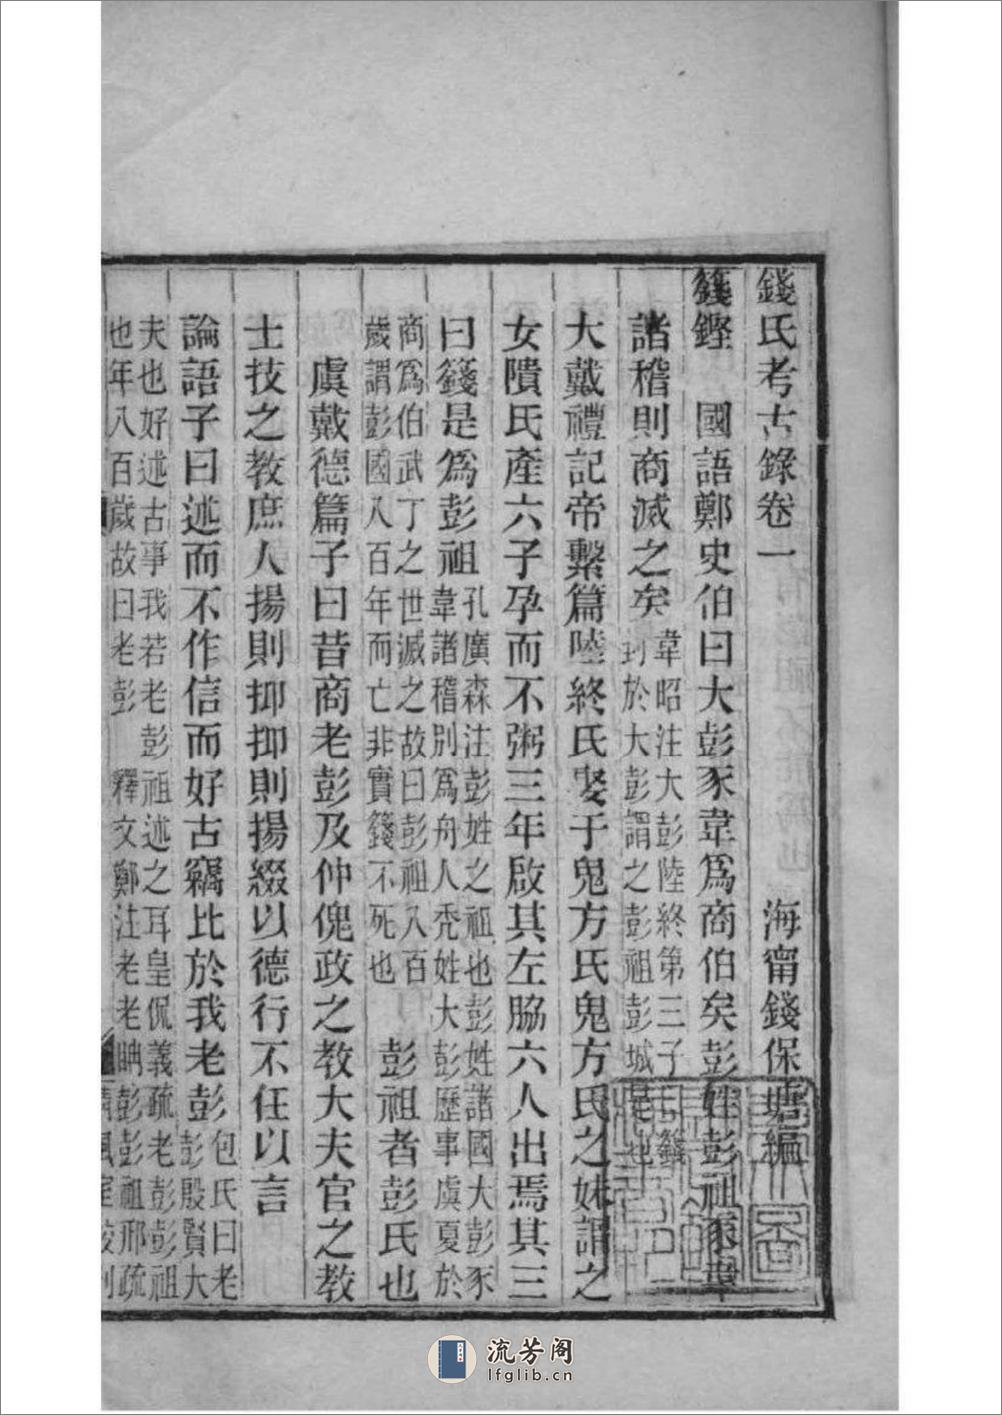 錢氏考古錄卷一
海甯錢保塘編
籛鏗 國語鄭史伯曰大彭豕韋爲商伯矣彭姓彭祖豕韋
諸稽則商滅之矣韋昭注大彭陸終第三子曰籛
封於大彭謂之彭祖彭城是也
大戴禮記帝繫篇陸終氏娶于鬼方氏鬼方氏之妹謂之
女隤氏產六子孕而不粥三年啟其左脇六人出焉其三
曰籛是爲彭祖孔廣森注彭姓之祖也彭姓諸國大彭豕
韋諸稽別爲舟人禿姓大彭歷事虞夏於
商爲伯武丁之世滅之故曰彭祖八百
歲謂彭國八百年而亡非實籛不死也 彭祖者彭氏也
虞戴德篇子曰昔商老彭及仲傀政之教大夫官之教
士技之教庶人揚則抑抑則揚綴以德行不任以言
論語子曰述而不作信而好古竊比於我老彭包氏曰老
彭殷賢大
夫也好述古事我若老彭祖述之耳皇侃義疏老彭彭祖
也年八百歲故曰老彭 釋文鄭注老老聃彭彭祖邢疏
清風室校刊
流芳阁
lfglib.cn